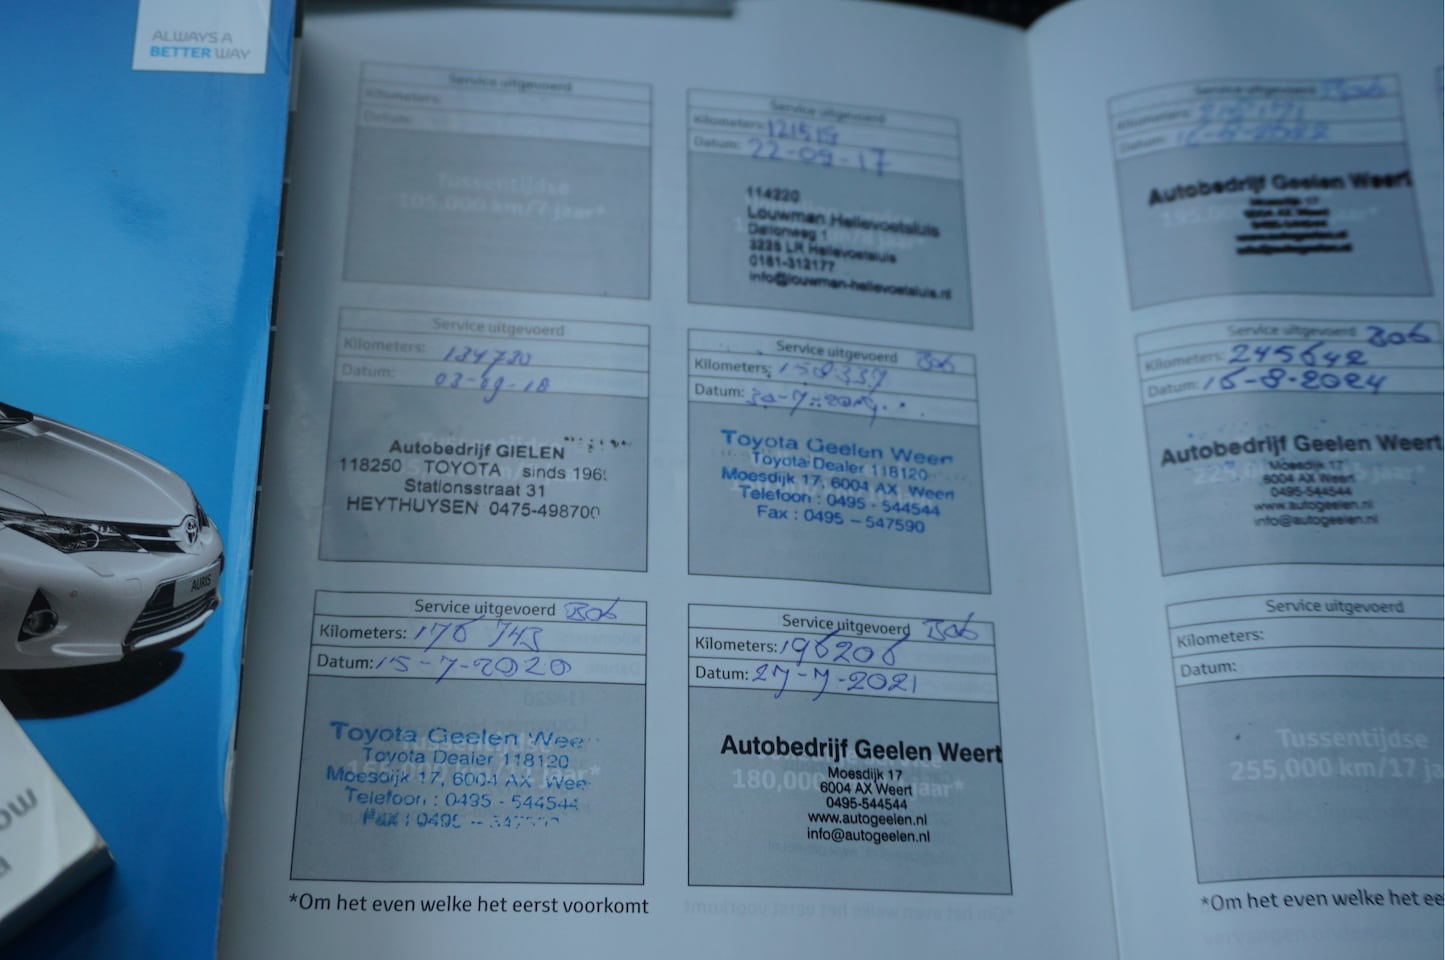 ALWAYS A
BETTER WAY
AURIS
Service uitgevoerd
Kilometers:
Datum:
Tussentijdse
105.000 km/7 jaar*
Service uitgevoerd
Kilometers: 121519
Datum: 22-09-17
114220
Louwman Hellevoetsluis
3225 LR Hellevoetsluis
0181-312177
info@louwman-hellevoetsluis.nl
Service uitgevoerd
Kilometers: 134730
Datum: 03-09-18
Autobedrijf GIELEN
118250 TOYOTA sinds 196
Stationsstraat 31
HEYTHUYSEN 0475-498700
Service uitgevoerd Bob
Kilometers: 158339
Datum: 30-7-2019
Toyota Geelen Weer
Toyota Dealer 118120
Moesdijk 17, 6004 AX Weert
Telefoon : 0495 - 544544
Fax : 0495 - 547590
Service uitgevoerd Bob
Kilometers: 176 743
Datum: 15-7-2020
Toyota Geelen Wee
Toyota Dealer 118120
Moesdijk 17, 6004 AX Wee
Telefoon : 0495 - 544544
Fax : 0495 -
Service uitgevoerd Bob
Kilometers: 196206
Datum: 27-7-2021
Autobedrijf Geelen Weert
180,000 jaar*
Moesdijk 17
6004 AX Weert
0495-544544
www.autogeelen.nl
info@autogeelen.nl
*Om het even welke het eerst voorkomt
Service uitgevoerd Bob
Kilometers:
Datum:
Autobedrijf Geelen Weert
Moesdijk 17
6004 AX Weert
Service uitgevoerd Bob
Kilometers: 245642
Datum: 15-8-2024
Autobedrijf Geelen Weert
Moesdijk 17
6004 AX Weert
0495-544544
www.autogeelen.nl
info@autogeelen.nl
Service uitgevoerd
Kilometers:
Datum:
Tussentijdse
255,000 km/17 ja
*Om het even welke het ee